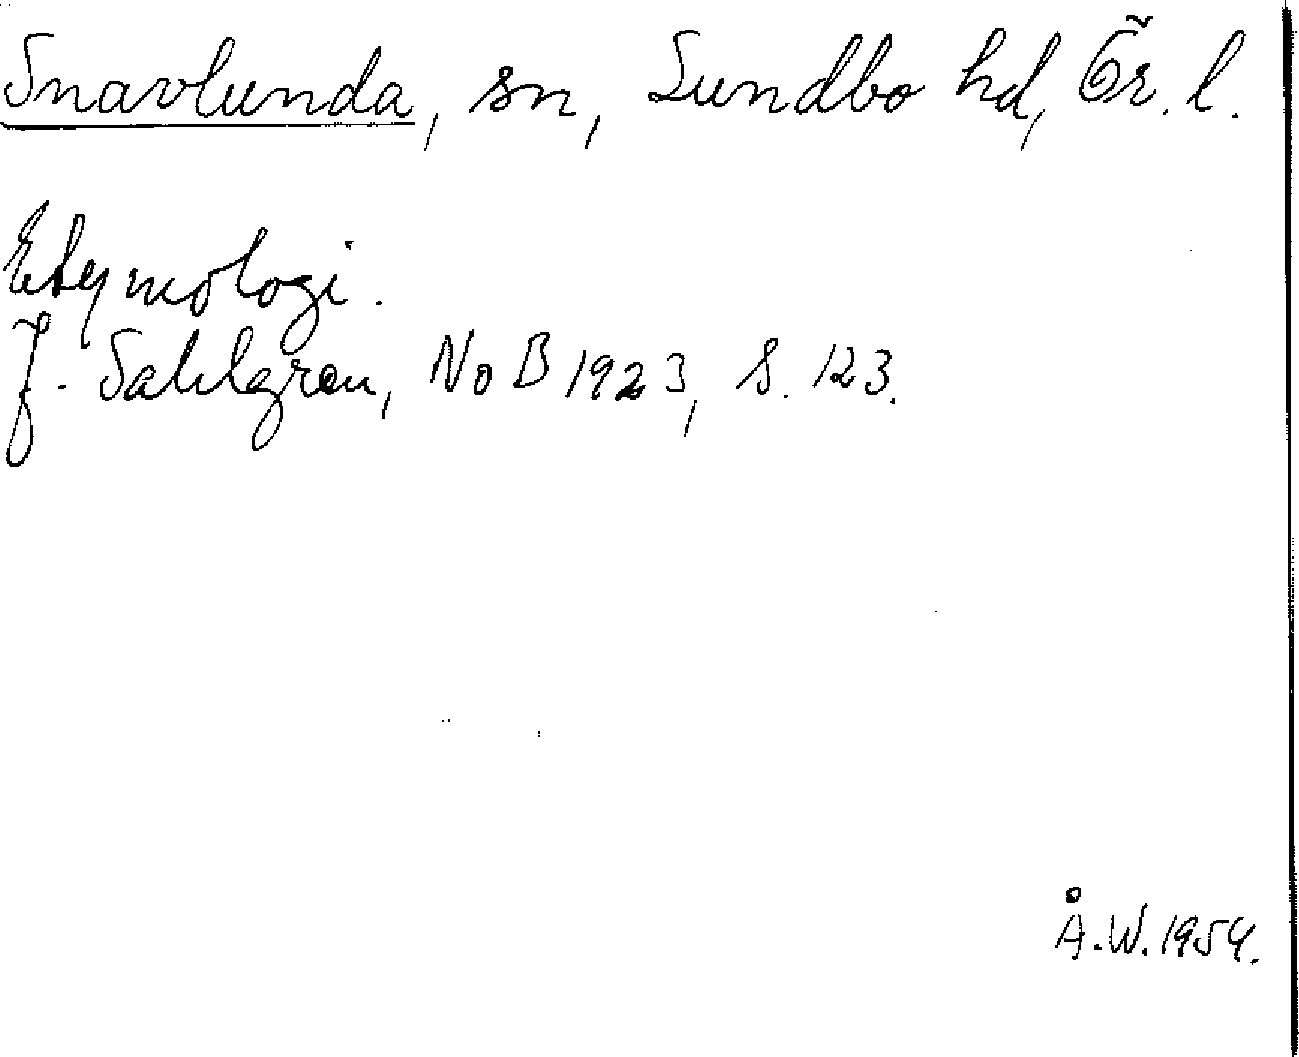 Snavlunda, sn, Sundbo hd, Ör. l.
Etymologi.
J. Sahlgren, NoB 1923, s. 123.
Å.W. 1954.